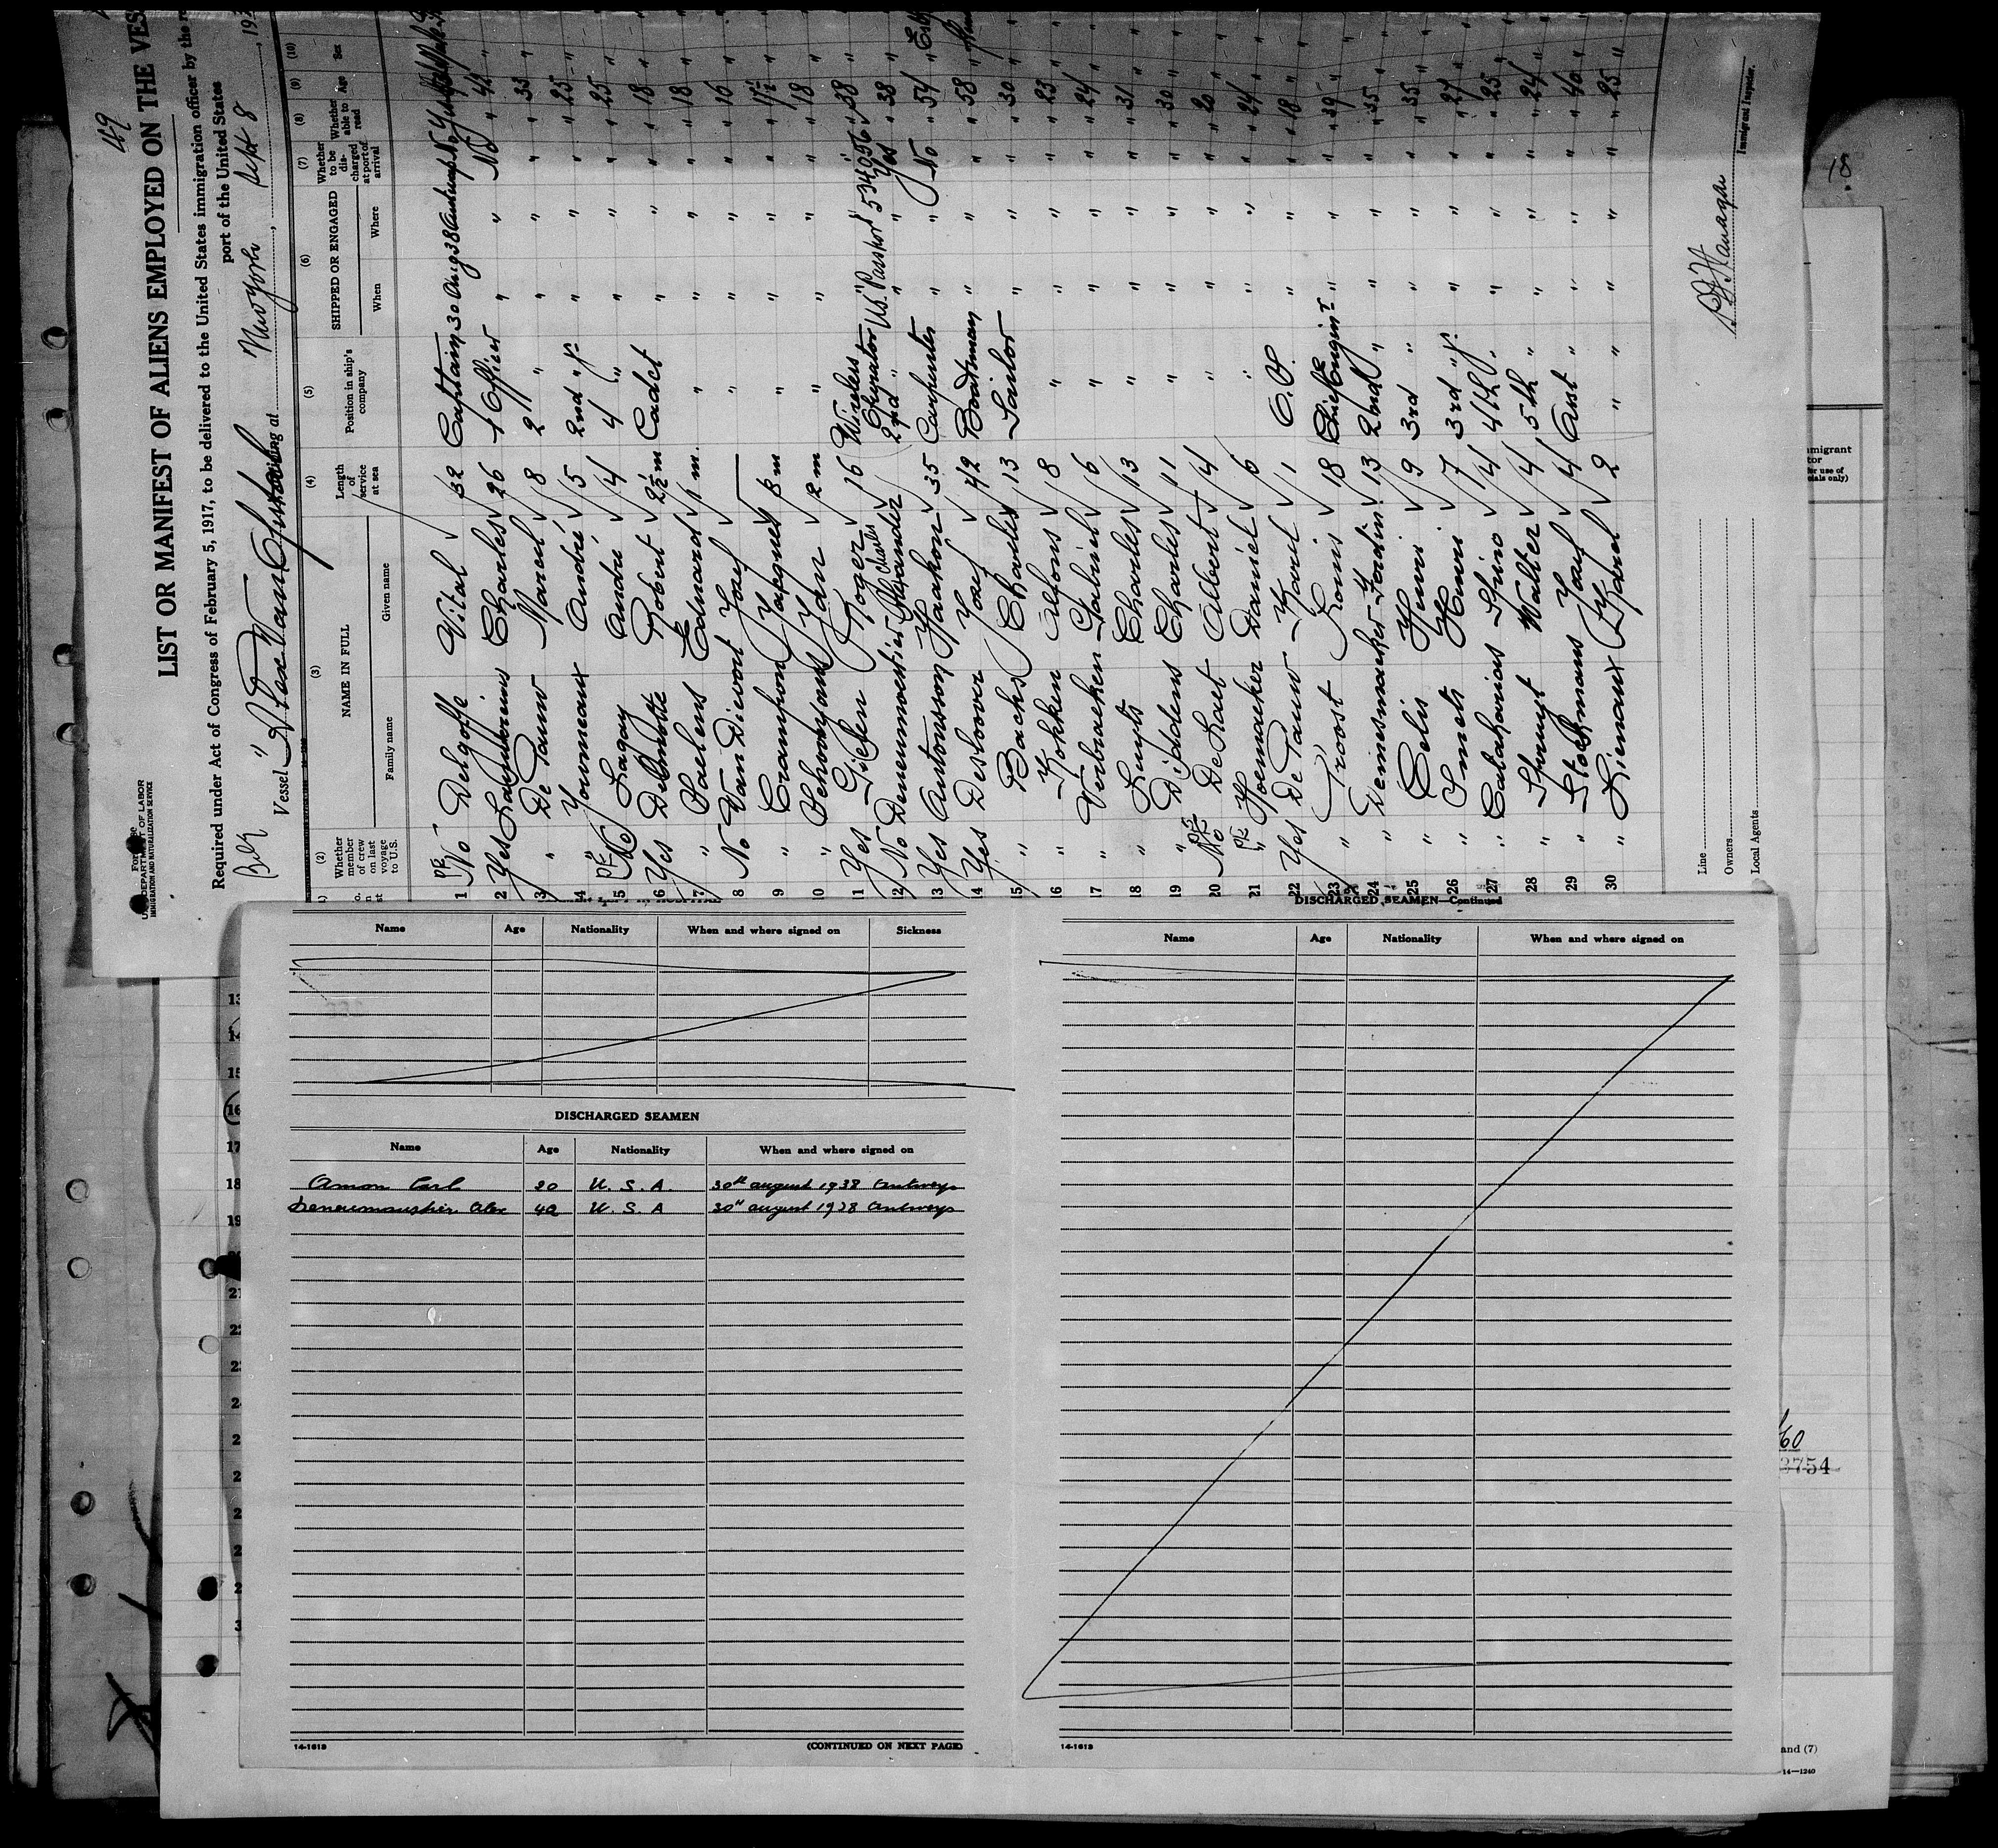 49
LIST OR MANIFEST OF ALIENS EMPLOYED ON THE VES
Required under Act of Congress of February 5, 1917, to be delivered to the United States immigration officer by the
port of the United States
DEPARTMENT OF LABOR
IMMIGRATION AND NATURALIZATION SERVICE
Belg Vessel "Alex Van arriving at New York, Sept 8, 193
(2) (3) (4) (5) (6) (7) (8) (9) (10)
Whether member of crew on last voyage to U.S. NAME IN FULL Family name Given name Length of service at sea Position in ship's company SHIPPED OR ENGAGED When Where Whether to be discharged at port of arrival Whether able to read Age Sex
1 No Delgoffe Vital 32 Captain 30 Aug 38 Antwerp No
2 Yes Charles 26 1 Officer " " No " 42 "
3 " De Pauw Marcel 8 2 " " " " " 33 "
4 " André 5 2nd " Jr " " " " 25 "
5 No Lagay André 4 4 " " " " " 25 "
6 Yes Delmotte Robert 2½ m Cadet " " " " 18 "
7 " Saelens Edmard 1 m. " " " " " 18 "
8 No Van Dievort Jozef — " " " " " 16 "
9 " Crampon Jacques 3 m " " " " " 17½ "
10 " Schoonjans Jan 2 m " " " " " 18 "
11 Yes Gilen Roger 16 Wireless Operator " " " " 38 "
12 No Deneumostier Alexander Charles 2nd " U.S. Passport 534056 Yes " 38 "
13 Yes Antonsson Haakon 35 Carpenter " " No " 54 "
14 Yes Desloover Jozef 42 Boatsman " " " " 58 "
15 " Backs Charles 13 Sailor " " " " 30 "
16 " Kokken Alfons 8 " " " " " 23 "
17 " Verbraeken Gabriel 6 " " " " " 24 "
18 " Luyts Charles 13 " " " " " 31 "
19 " Diddens Charles 11 " " " " " 30 "
20 No De Laet Albert 4 " " " " " 20 "
21 " Hoemaeker Daniel 6 " " " " " 24 "
22 Yes De Pauw Karel 1 O.S. " " " " 18 "
23 " Troost Louis 18 Chief Engin. " " " " 39 "
24 " 13 2nd " " " " " 35 "
25 " Celis Henri 9 3rd " " " " " 35 "
26 " Smets Henri 7 3rd " Jr. " " " " 27 "
27 " 4 4th " " " " 25 "
28 " Walter 4 5th " " " " " 24 "
29 " Stockmans Jozef 4 Asst " " " " " 40 "
30 " Lienaux 2 " " " " " 25 "
Line
Owners
Local Agents
Immigrant Inspector.
18
Name Age Nationality When and where signed on Sickness
DISCHARGED SEAMEN
Name Age Nationality When and where signed on
Amon Carl 20 U. S. A. 30th august 1938 Antwerp
Deneumoustier Alex 42 U. S. A 30th august 1938 Antwerp
14-1613
(CONTINUED ON NEXT PAGE)
DISCHARGED SEAMEN—Continued
Name Age Nationality When and where signed on
14-1613
60
3754
and (7)
14—1240